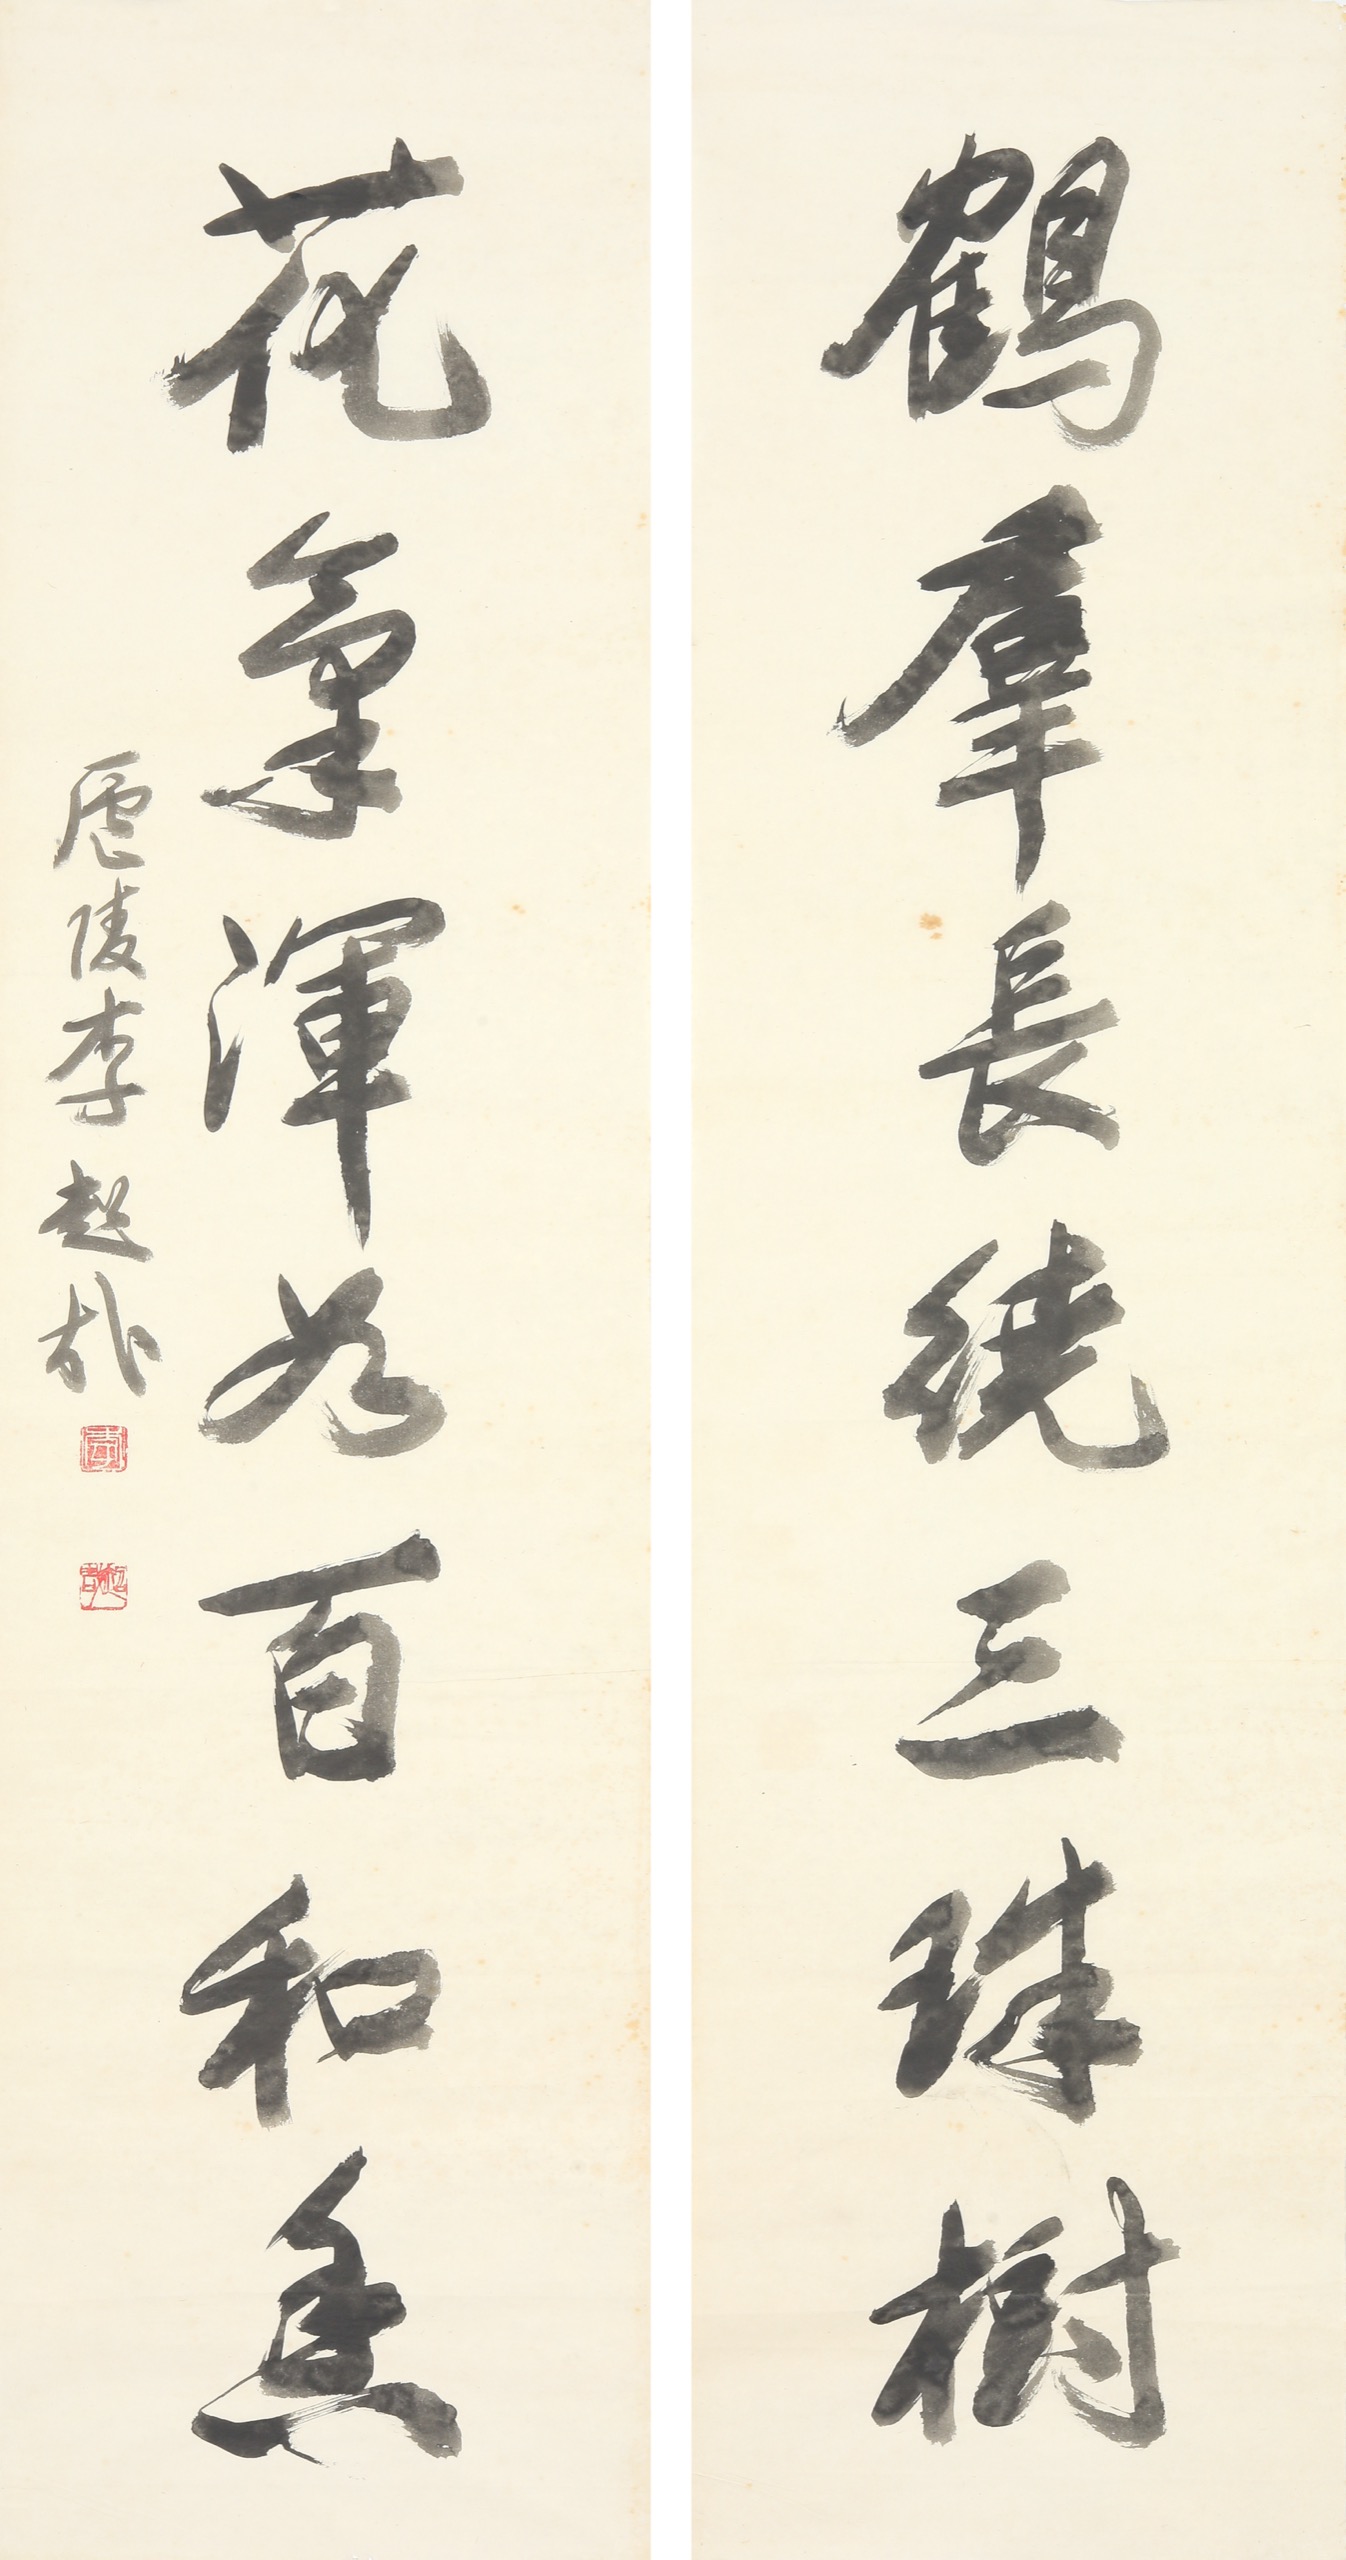 鶴羣長繞三珠樹
花氣渾如百和香
廬陵李超哉